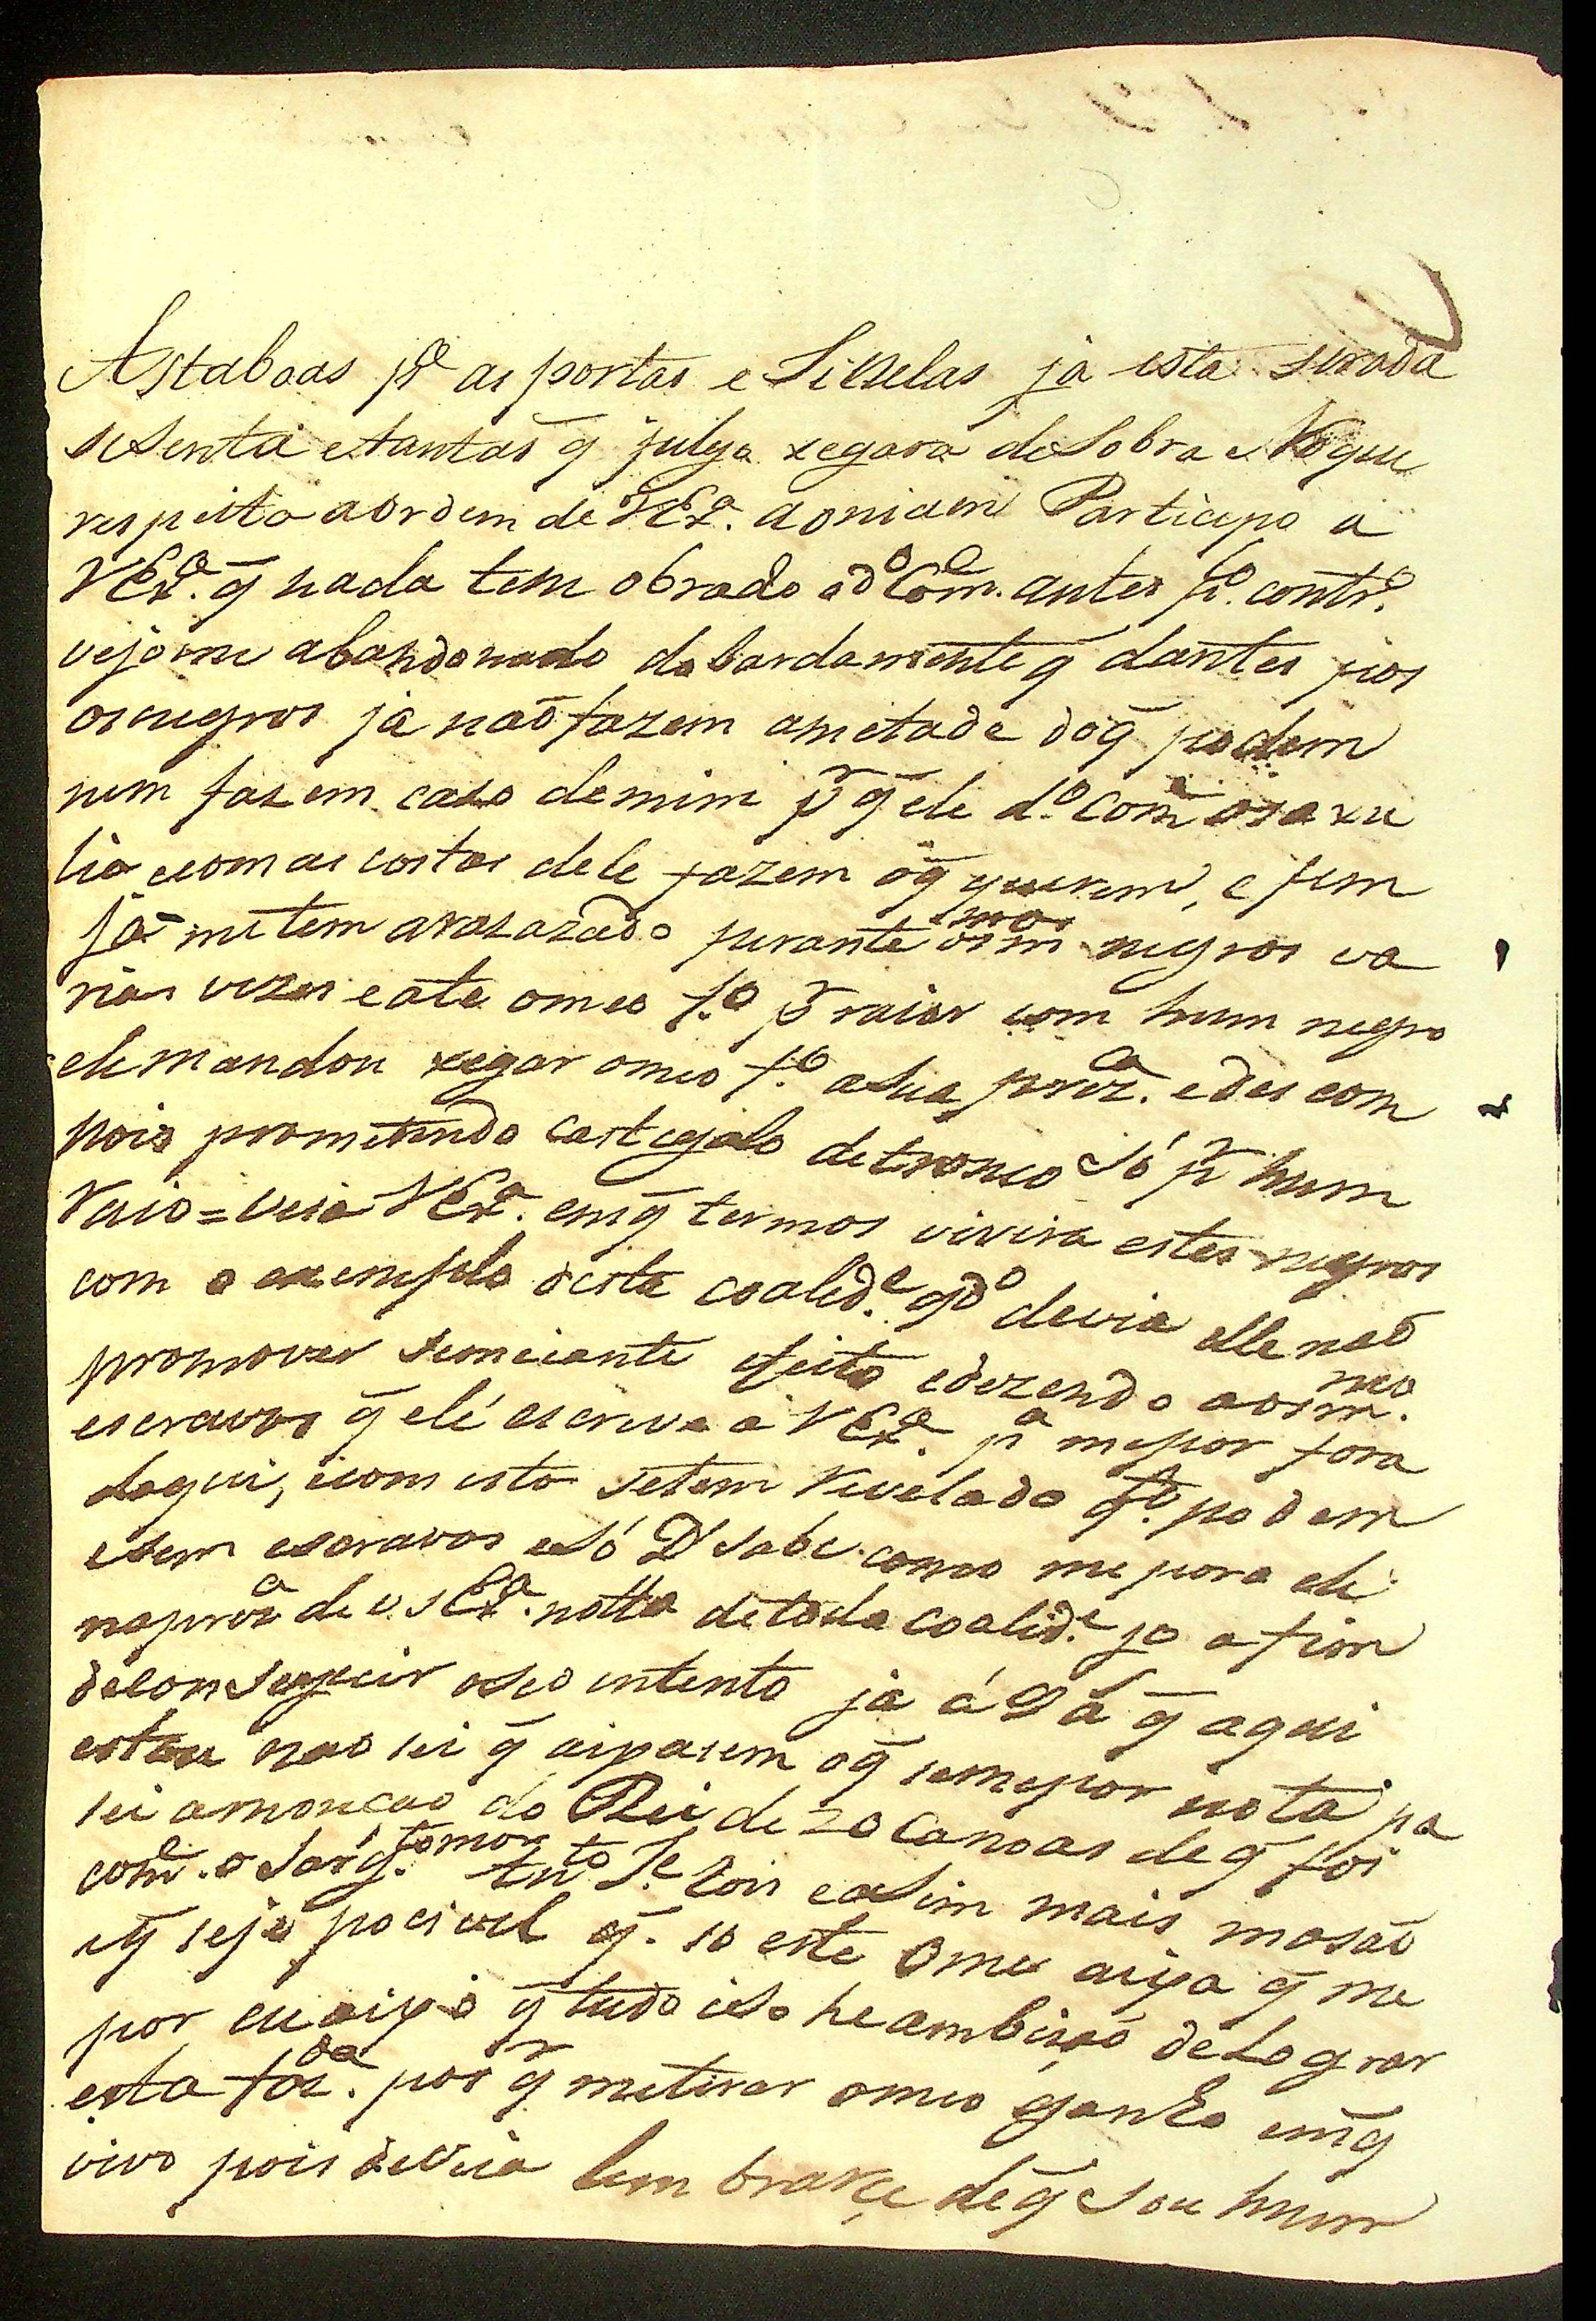 Astaboas pa as portas e Sinelas ja está serada
seSenta etantas q̃ julga xegara deSobra e No que
respeito aordem de VExa. aoniden Participo a
VExa. q̃ nada tem obrado odo Come. antes po. contro.
vejome abandonado dabardamente q̃ dantes pos
osnegros ja naõ fazem ametade doq̃ podem
nem fazem cazo demim pr q̃ ele do. Come oza xu
lio ecom as costas dele fazem oq̃ querem, e fim
já metem arazoado perante osmmos negros va
rias vezes e ate omeo fo. pr raiar com hum negro
ele mandou xegar omeo fo. aSua preza. e des com
pois prometendo castigalo detronco Só pr hum
Raio = veia VExa. emq̃ termos vivira estes negros
com o exemplo desta coalide. qdo devia elle naõ
promover semeiante efeito edezendo aosmmos.
escravos q̃ ele escreve a VExa. pa mepor fora
daqui, ecom isto setem Revelado qto. podem
esem escravos eSó Ds Sabe como me pora ele
napreza de VSExa. notta detoda coalide. ja afim
deconseguir oSeo intento ja á Sa q̃ aqui
estou nao sei q̃ aipasem oq̃ semepor nota pa
sei amonçao do Rei de 20 canoas de q̃ foi
come. o Sargtomor Tno Je Lois eaSim mais mosaõ
eq̃ seja pocivel q̃. so este Omeu aipa q̃ me
por eu aipa q̃ tudo iSo heambisaõ deLograr
esta fazda. por q̃ metirar omeo ganho emq̃
vivo pois devia lem brarçe deq̃ Sou hum